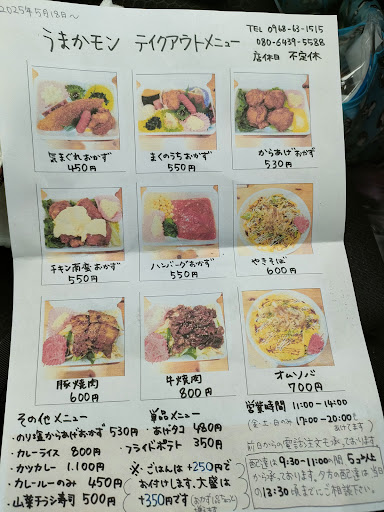 2025年5月18日～
うまかモン テイクアウトメニュー
TEL 0948-63-1515
080-6439-5588
店休日 不定休
気まぐれおかず
450円
まくのうちおかず
550円
からあげおかず
530円
チキン南蛮おかず
550円
ハンバーグおかず
550円
やきそば
600円
豚焼肉
600円
牛焼肉
800円
オムソバ
700円
その他メニュー
・のり塩からあげおかず 530円
・カレーライス 800円
・カツカレー 1.100円
・カレールーのみ 450円
・山菜チラシ寿司 500円
単品メニュー
・あげタコ 480円
・フライドポテト 350円
※・ごはんは+250円で
お付けします。大盛は
+350円です
営業時間 11:00～14:00
(金・土・日のみ 17:00～20:00まで
あけてます)
前日からの電話注文も承っております。
配達は9:30～11:00の間 5コ以上
から承っております。夕方の配達は当日
の13:30頃までにご相談下さい。